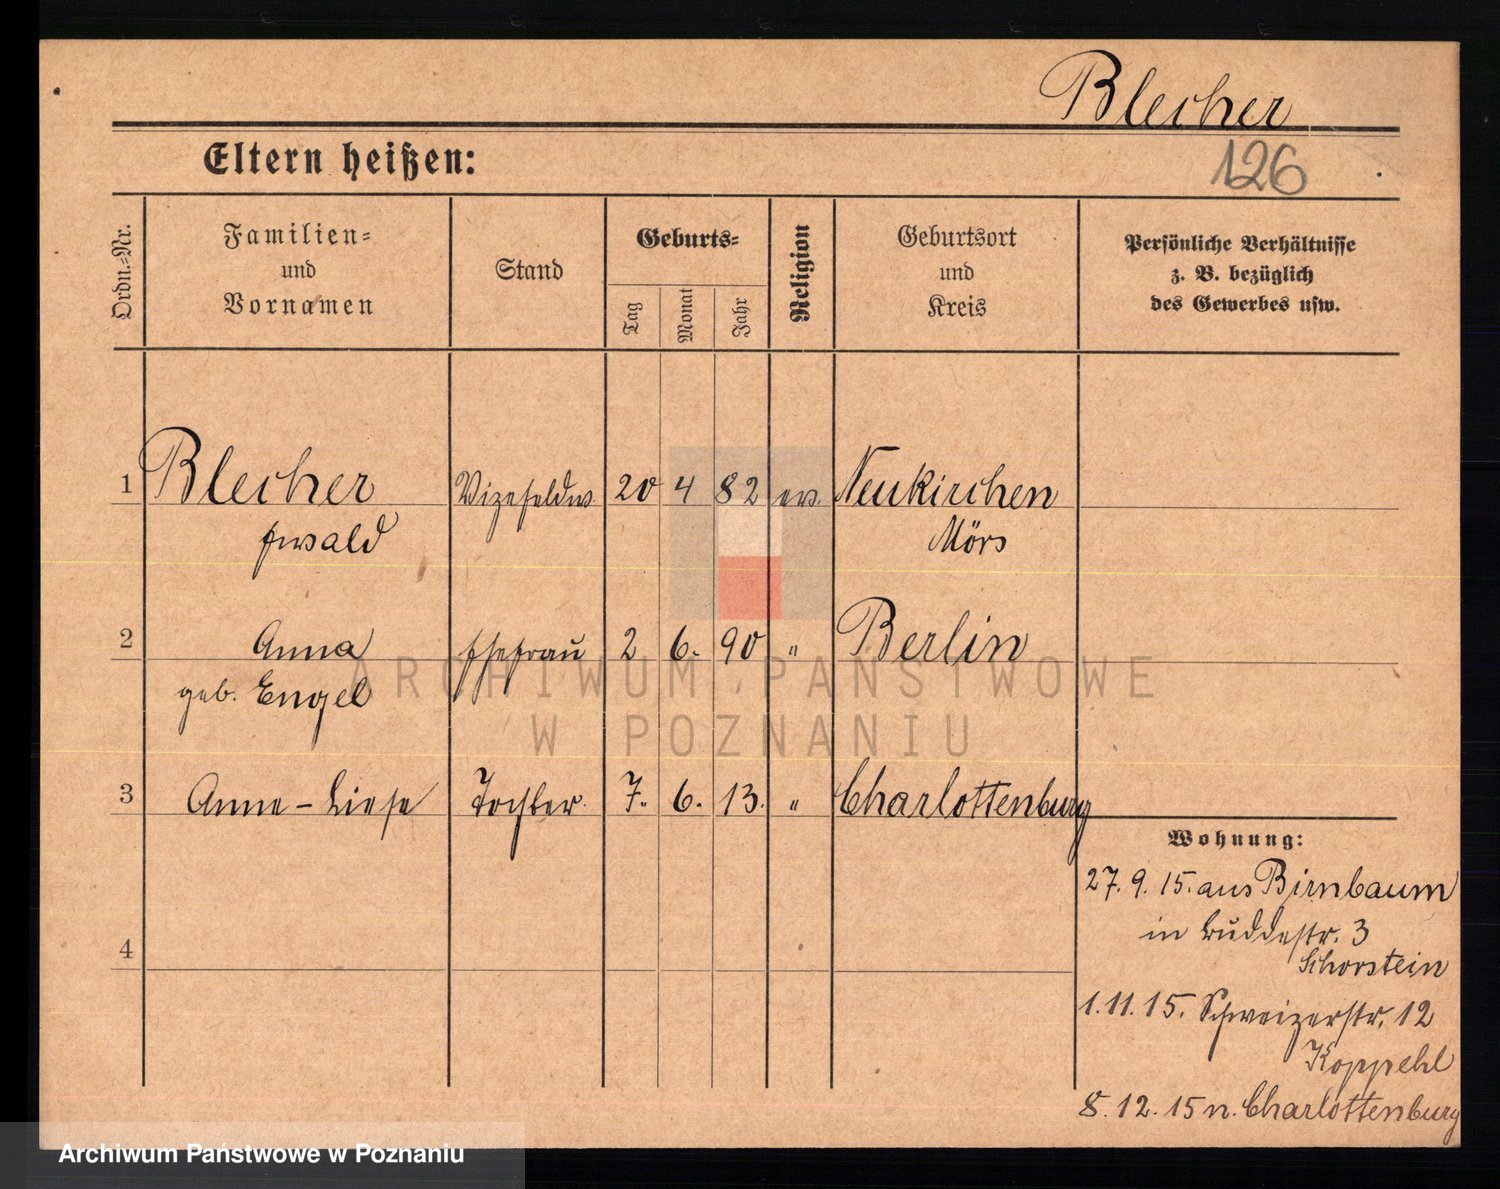 Blecher
126
Eltern heißen:
Ordn.=Nr.
Familien=
und
Vornamen
Stand
Geburts=
Tag
Monat
Jahr
Religion
Geburtsort
und
Kreis
Persönliche Verhältnisse
z. B. bezüglich
des Gewerbes usw.
1 Blecher Vizefeldw. 20 4 82 ev. Neukirchen
Ewald Mörs
2 Anna Ehefrau 2 6. 90 " Berlin
geb. Engel
3 Anne-Liese Tochter 7. 6. 13. " Charlottenburg
Wohnung:
27. 9. 15. aus Birnbaum
in Buddestr. 3
Schorstein
4
1. 11. 15. Schweizerstr. 12
Koppehl
8. 12. 15 n. Charlottenburg
ARCHIWUM PAŃSTWOWE
W POZNANIU
Archiwum Państwowe w Poznaniu